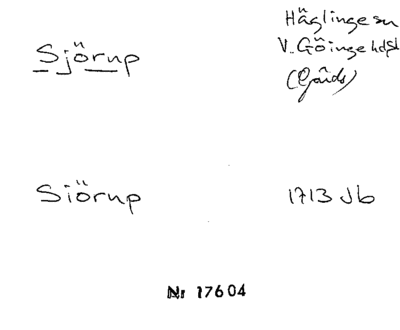 Sjörup
Häglinge sn
V. Göinge hds
(Gärds)
Siörup
1713 Jb
Nr 17604